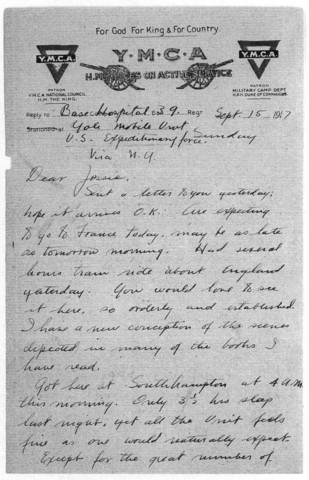 For God For King & For Country.
Y.M.C.A
Y.M.C.A
Y.M.C.A
H.M. ON ACTIVE SERVICE
PATRON
Y.M.C.A. NATIONAL COUNCIL
H.M. THE KING.
PATRON
MILITARY CAMP DEPT
H.R.H. DUKE OF CONNAUGHT
Reply to Base Hospital 39. Regt Sept. 15 1917
Stationed at Yale Mobile Unit, Sunday
U.S. Expeditionary force.
Via N.Y
Dear
Sent a letter to you yesterday;
hope it arrives O.K. Are expecting
to go to France today, may be as late
as tomorrow morning. Had several
hours train ride about England
yesterday. You would love to see
it here, so orderly and established.
I have a new conception of the scenes
depicted in many of the books I
have read.
Got here at Southhampton at 4 A.M.
this morning. Only 3½ hrs sleep
last night, yet all the Unit feels
fine as one would naturally expect.
Except for the great number of